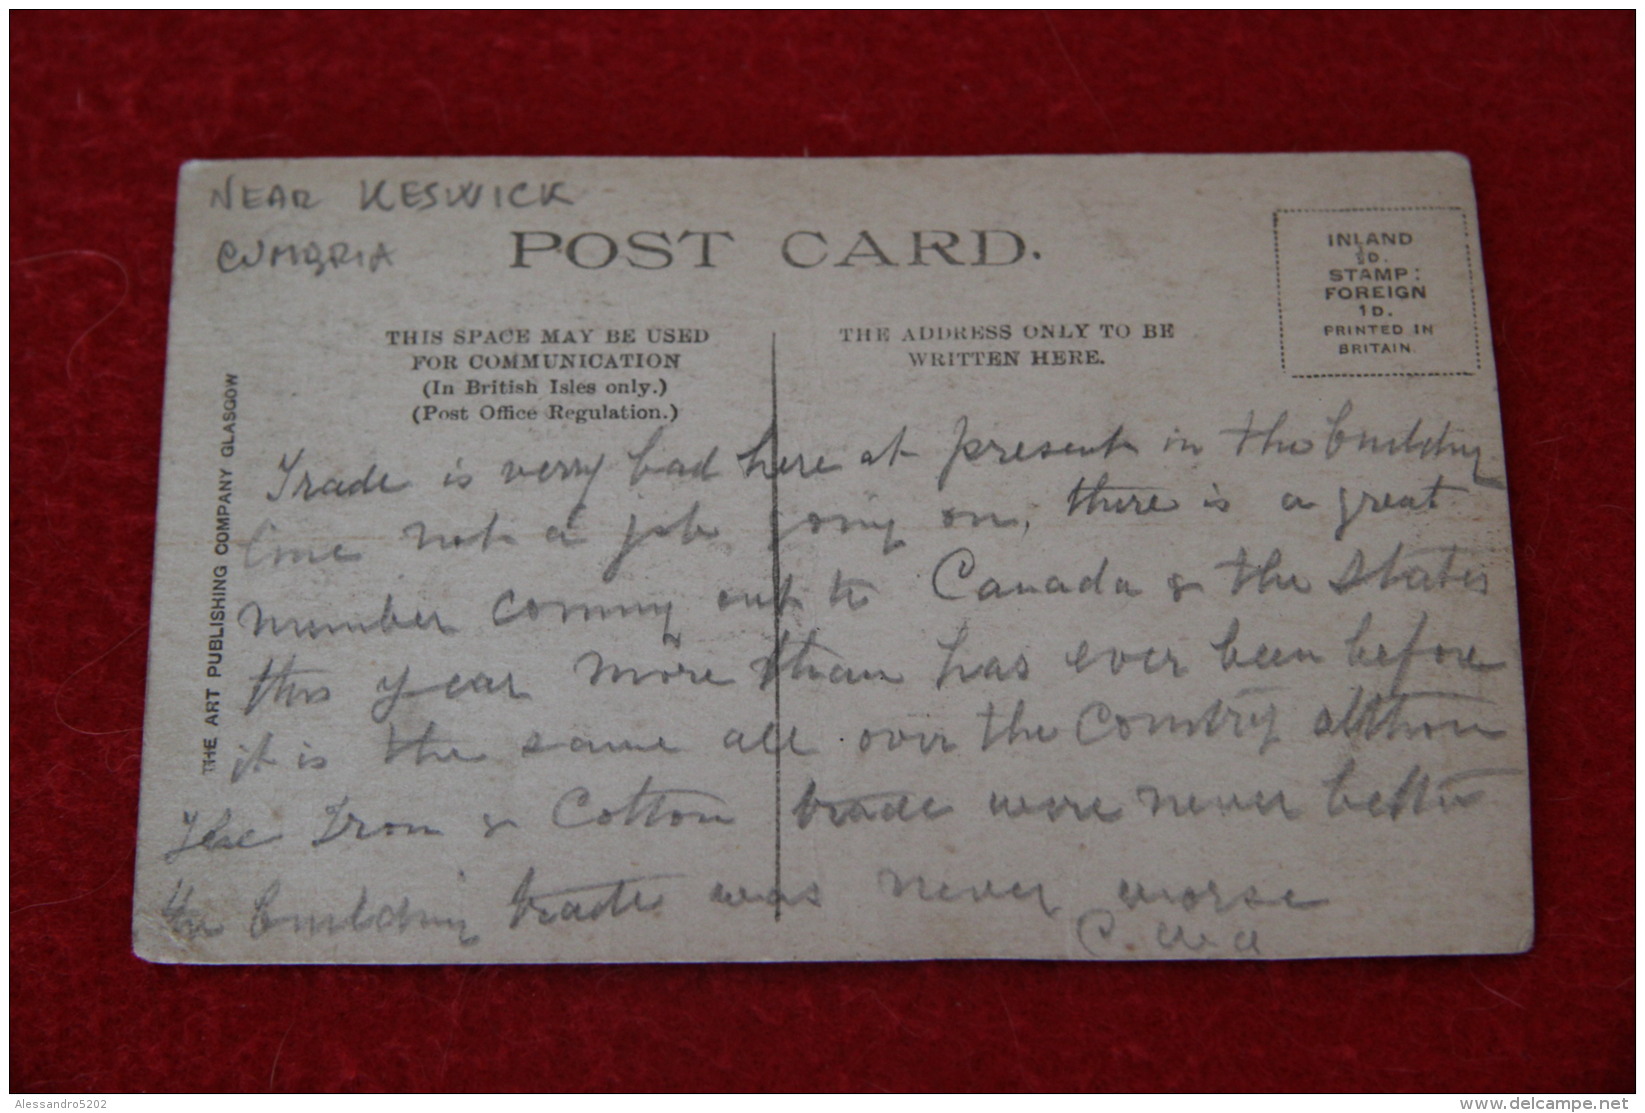 NEAR KESWICK
CUMBRIA
POST CARD.
INLAND
½D.
STAMP:
FOREIGN
1D.
PRINTED IN
BRITAIN.
THIS SPACE MAY BE USED
FOR COMMUNICATION
(In British Isles only.)
(Post Office Regulation.)
THE ADDRESS ONLY TO BE
WRITTEN HERE.
THE ART PUBLISHING COMPANY GLASGOW
Trade is very bad here at present in the building
line not a job going on, there is a great
number coming out to Canada & the States
this year more than has ever been before
it is the same all over the Country
The Iron & Cotton trade were never better
the building trade was never worse
Alessandro5202
delcampe.net